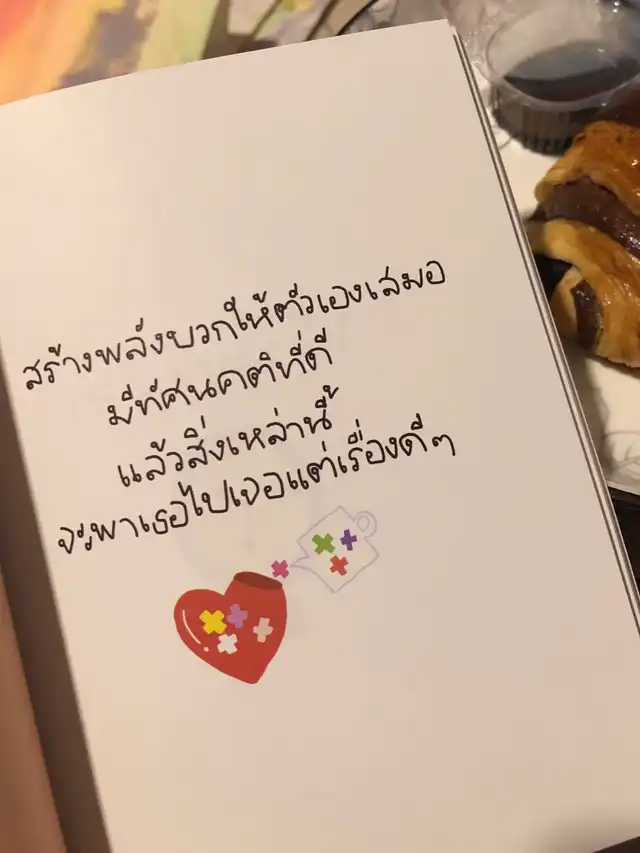 สร้างพลังบวกให้ตัวเองเสมอ
มีทัศนคติที่ดี
แล้วสิ่งเหล่านี้
จะพาเธอไปเจอแต่เรื่องดีๆ